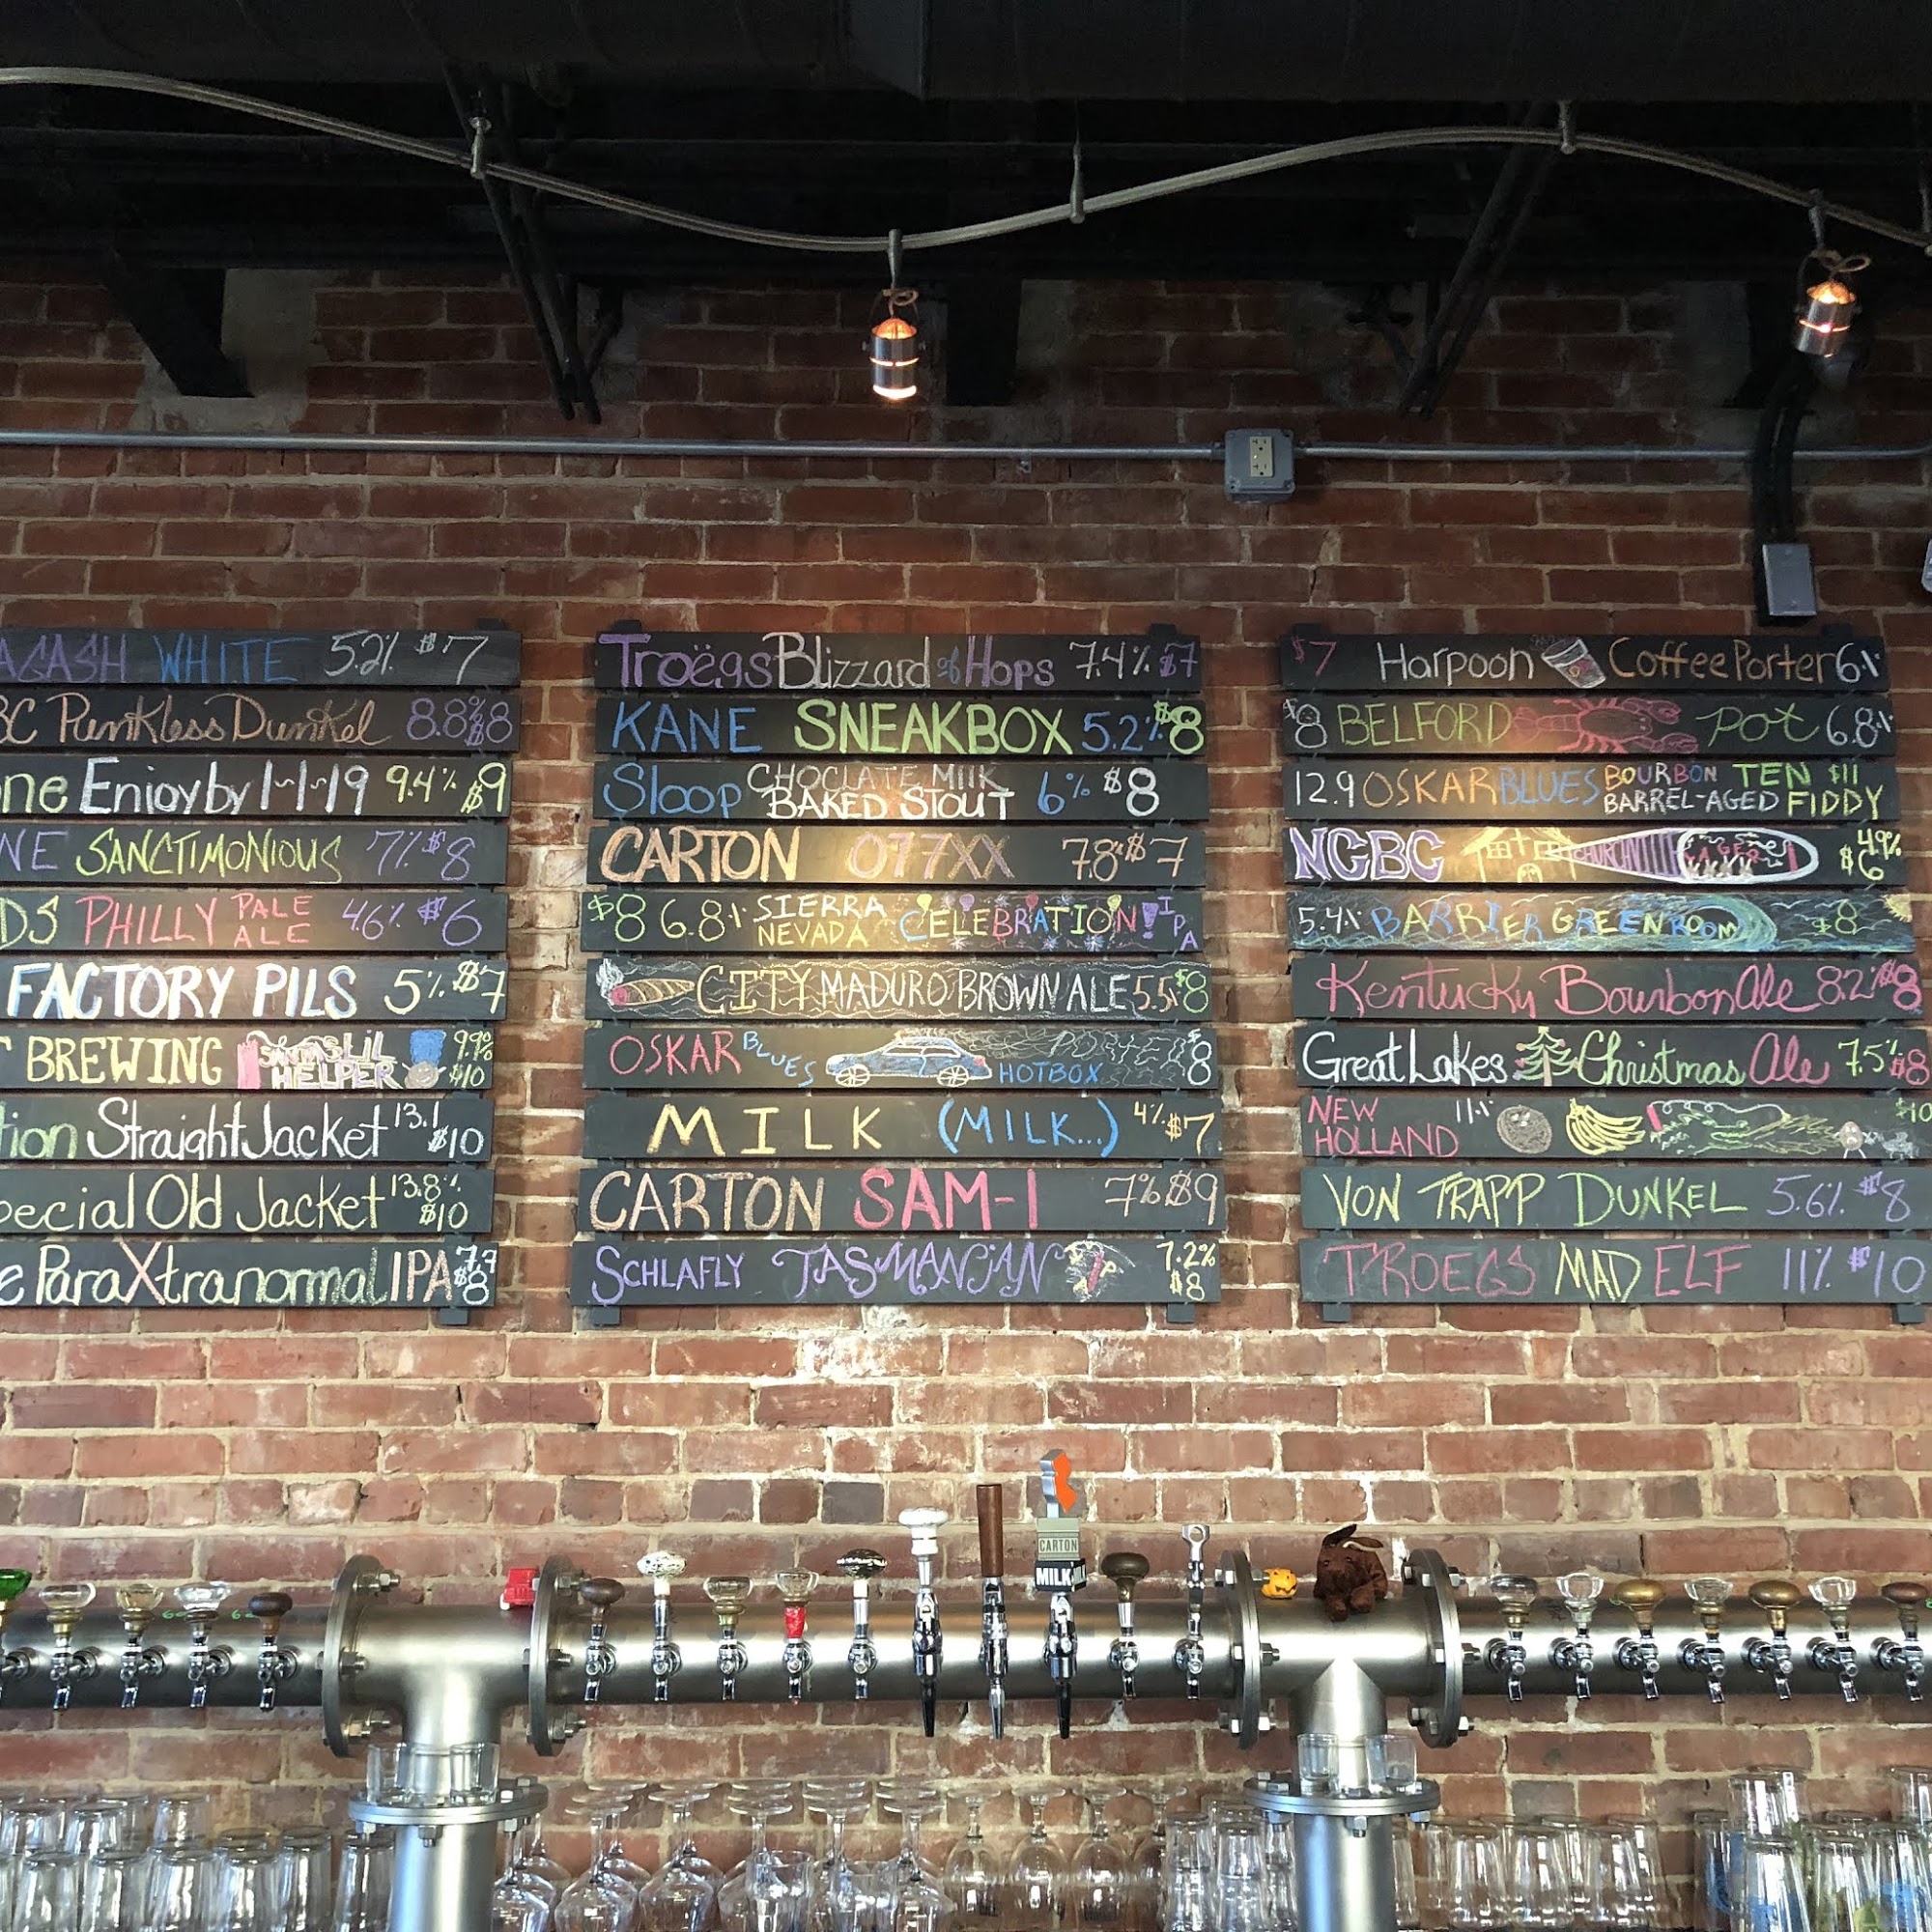 AGASH WHITE 5.2% $7
BC Punkless Dunkel 8.8% $8
one Enjoy by 1-1-19 9.4% $9
NE SANCTIMONIOUS 7% $8
DS PHILLY PALE ALE 4.6% $6
FACTORY PILS 5% $7
BREWING SANTA'S LIL HELPER 9.9% $10
tion Straight Jacket 13.1 $10
pecial Old Jacket 13.8% $10
e ParaXtranormal IPA 7.7 $8
Troëgs Blizzard of Hops 7.4% $7
KANE SNEAKBOX 5.2% $8
Sloop CHOCLATE MILK BAKED STOUT 6% $8
CARTON 077XX 7.8 $7
$8 6.8% SIERRA NEVADA CELEBRATION! IPA
CITY MADURO BROWN ALE 5.5% $8
OSKAR BLUES HOTBOX PORTER $8
MILK (MILK...) 4% $7
CARTON SAM-I 7% $9
SCHLAFLY TASMANIAN 7.2% $8
$7 Harpoon Coffee Porter 6%
$8 BELFORD POT 6.8%
12.9 OSKAR BLUES BOURBON BARREL-AGED TEN FIDDY $11
NGBC CHURCH LAGER 4.9% $6
5.4% BARRIER GREENROOM $8
Kentucky Bourbon Ale 8.2% $8
Great Lakes Christmas Ale 7.5% $8
NEW HOLLAND 11% $10
VON TRAPP DUNKEL 5.6% $8
TROEGS MAD ELF 11% $10
CARTON
MILK